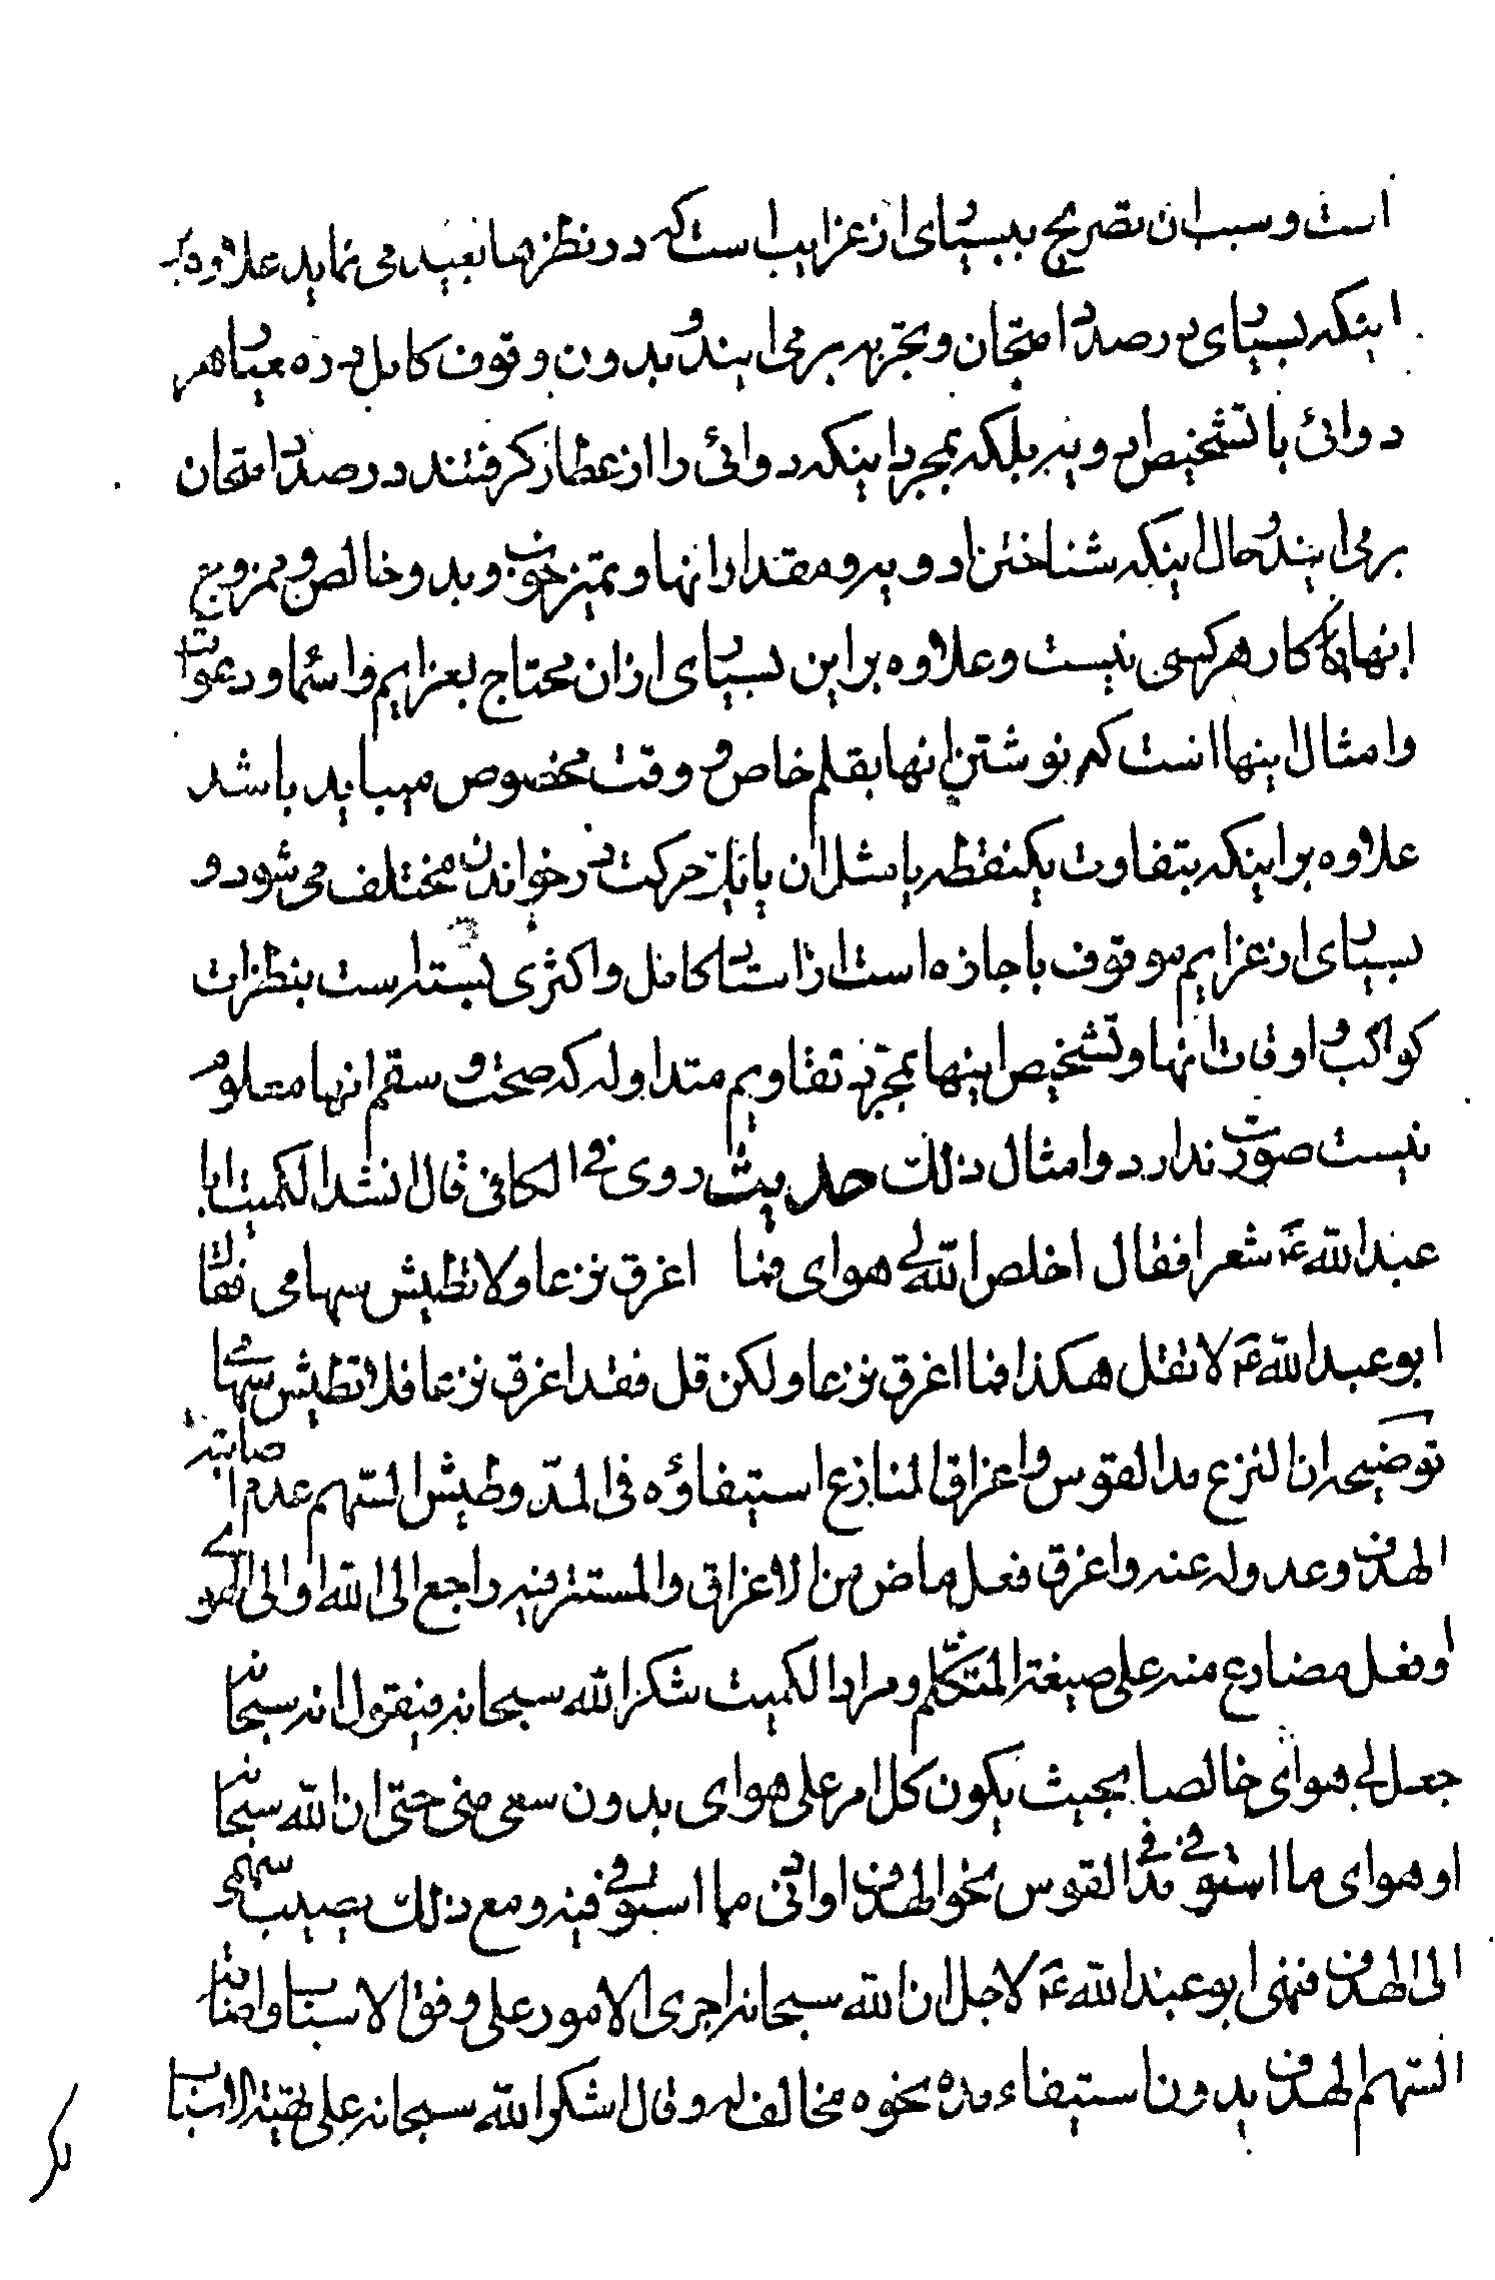 است و سبب ان تصریح ببسیاری از غرایب است که در نظرها بعید می نماید علاوه بر
اینکه بسیاری در صدد امتحان و تجربه بر می ایند و بدون وقوف کامل در معیار هر
دوائی با تشخیص ادویه بلکه بمجرد اینکه دوائی را از عطار کرفتند در صدد امتحان
بر می ایند و حال اینکه شناختن ادویه و مقدار انها و تمیز خوب و بد و خالص و ممزوج
انها کار هر کسی نیست و علاوه بر این بسیاری از ان محتاج بعزایم و اسما و دعوات
و امثال اینها است که نوشتن انها بقلم خاص و وقت مخصوص میباید باشد
علاوه بر اینکه بتفاوت یکنقطه یا مثل ان یا یک حرکت در خواندن مختلف می شود و
بسیاری از عزایم موقوف باجازه است از استاد کامل و اکثری بسته است بنظرات
کواکب و اوقات انها و تشخیص اینها بمجرد تقاویم متداوله که صحت و سقم انها معلوم
نیست صورت ندارد و امثال ذلک حدیث روی فی الکافی قال انشد الکمیت ابا
عبد الله ع شعرا فقال اخلص الله لی هوای فما اغرق نزعا ولا تطیش سهامی فقال
ابو عبد الله ع لا تقل هکذا فما اغرق نزعا ولکن قل فقد اغرق نزعا فلا تطیش سهامی
توضیحه ان النزع مد القوس و اغراق النازع استیفاؤه فی المد و طیش السهم عدم اصابته
الهدف و عدوله عنه و اغرق فعل ماض من الاغراق والمستتر فیه راجع الی الله او الی الهوی
او فعل مضارع منه علی صیغة المتکلم و مراد الکمیت شکر الله سبحانه فیقول انه سبحانه
جعل لی هوای خالصا بحیث یکون کل امر علی هوای بدون سعی منی حتی ان الله سبحانه
او هوای ما استوفی فی مد القوس نحو الهدف او انی ما استوفی فیه و مع ذلک یصیب سهمی
الی الهدف فنهی ابو عبد الله ع لاجل ان الله سبحانه اجری الامور علی وفق الاسباب و اصابة
السهم الهدف بدون استیفاء مده نحوه مخالف له و قال اشکر الله سبحانه علی تهیئة الاسباب